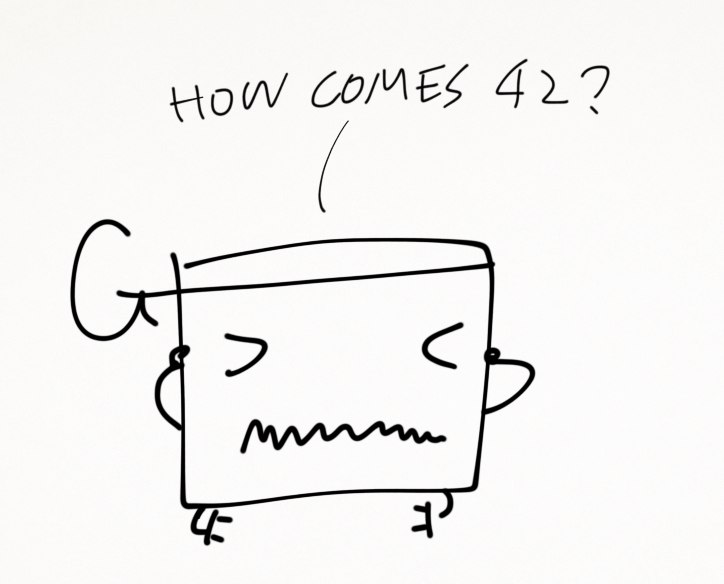 HOW COMES 42?